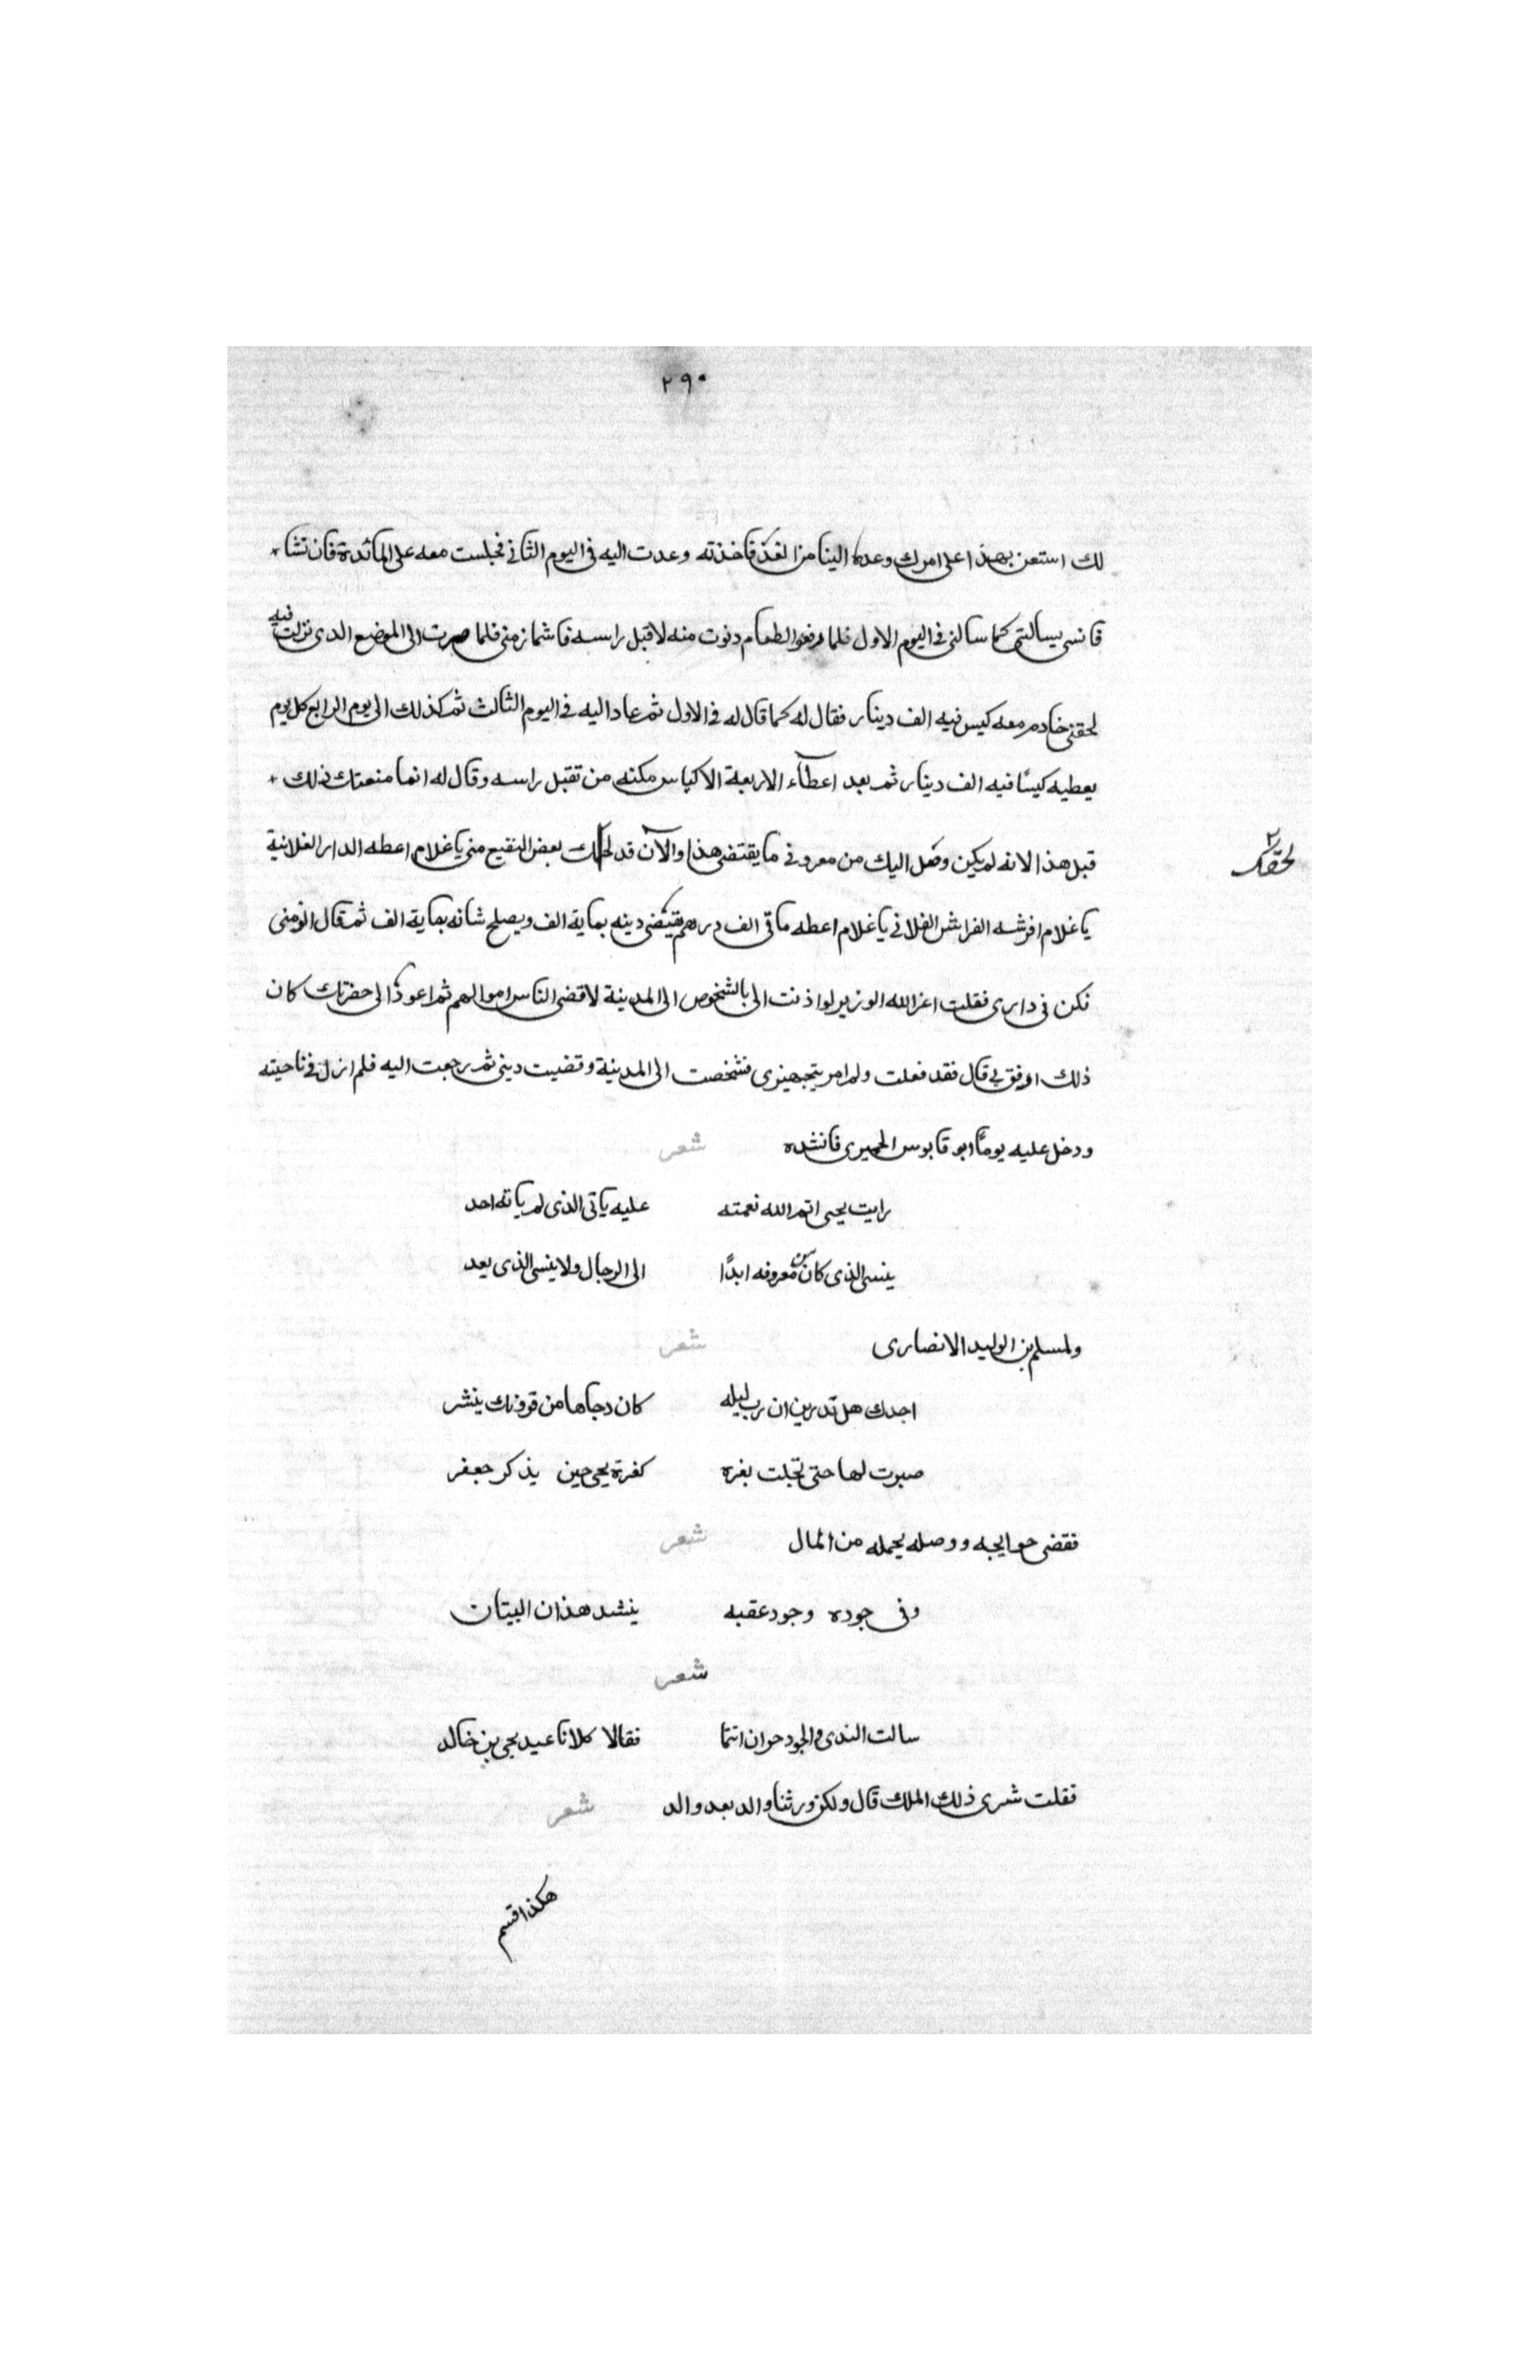 ٢٩٠
لك استعن بهذا على امرك وعده الينا من الغد فاخذته وعدت اليه فى اليوم الثانى فجلست معه على المائدة فان نشا
قا نسى يسالتى كما سالنى فى اليوم الاول فلما رفعوا الطعام دنوت منه لاقبل راسه فاشمازمنى فلما صرت الى الموضع الدى نزلت فيه
لحقنى خادم معه كيس فيه الف دينار فقال له كما قال له فى الاول ثم عاد اليه فى اليوم الثالث ثم كذلك الى يوم الرابع كل يوم
يعطيه كيسًا فيه الف دينار ثم بعد اعطآء الاربعة الاكياس مكنه من تقبل راسه وقال له انما منعتك ذلك
قبل هذا لانه لم يكن وصل اليك من معروفى ما يقتضى هذا والآن قد لحقك بعض النفع منى يا غلام اعطه الدار الفلانية
لحقك
يا غلام افرشه الفراش الفلانى يا غلام اعطه ماتى الف درهم يقضى دينه بماية الف ويصلح شانه بماية الف ثم قال الزمنى
نكن فى دارى فقلت اعز الله الوزير لو اذنت الى بالشخوص الى المدينة لاقضى الناس اموالهم ثم اعود الى حضرتك كان
ذلك اوفق بى قال فقد فعلت ولم امر بتجهيزى فشخصت الى المدينة وقضيت دينى ثم رجعت اليه فلم ازل فى ناحيته
ودخل عليه يومًا ابو قابوس الحميرى فانشده شعر
رايت يحيى اتم الله نعمته عليه ياتى الذى لم ياته احد
ينسى الذى كان من معروفه ابدًا الى الرجال ولا ينسى الذى يعد
ولمسلم بن الوليد الانصارى شعر
اجدك هل تدرين ان رب ليله كان دجاها من قرونك ينشر
صبرت لها حتى تجلت بغره كغرة يحيى حين يذكر جعفر
فقضى حوايجه ووصله بجمله من المال شعر
وفى جوده وجود عقبه ينشد هذان البيتان
شعر
سالت الندى والجود حران انتما فقالا كلانا عبد يحيى بن خالد
فقلت شرى ذلك الملك قال ولكن ورثنا والد بعد والد شعر
هكذا قسم